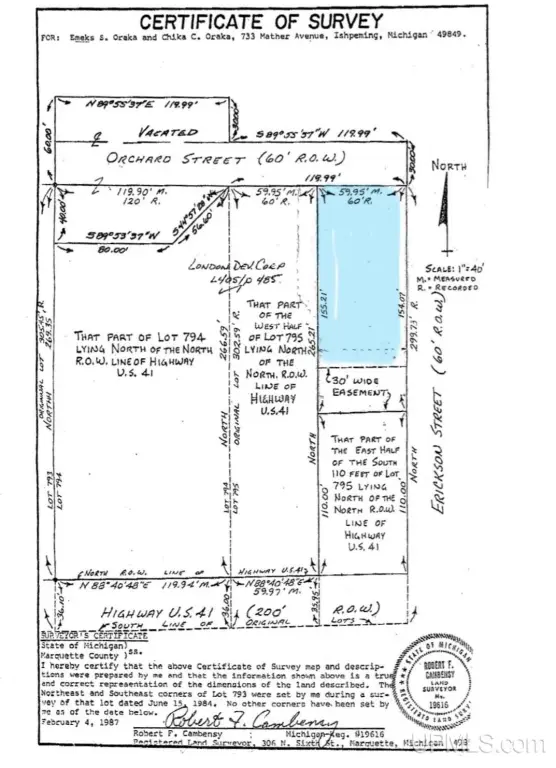 CERTIFICATE OF SURVEY
FOR: Emeks S. Oraka and Chika C. Oraka, 733 Mather Avenue, Ishpeming, Michigan 49849.
N 89°55'37"E 119.99'
30.00'
60.00'
VACATED
S 89°55'37"W 119.99'
ORCHARD STREET (60' R.O.W.)
30.00'
119.99'
NORTH
119.90' M.
120' R.
59.95' M.
60' R.
59.95' M.
60' R.
40.00'
S 44°57'28"W
56.60'
S 89°53'37"W
80.00'
SCALE: 1"=40'
M. = MEASURED
R. = RECORDED
LONDON DEV. CORP
L405/P 485
155.21'
154.07'
THAT PART OF LOT 794
LYING NORTH OF THE NORTH
R.O.W. LINE OF HIGHWAY
U.S. 41
THAT PART
OF THE
WEST HALF
OF LOT 795
LYING NORTH
OF THE
NORTH. R.O.W.
LINE OF
HIGHWAY
U.S.41
ORIGINAL LOT 305.45' R.
269.35'
NORTH
LOT 793
LOT 794
266.59'
302.59' R.
NORTH
ORIGINAL LOT
LOT 794
LOT 795
265.21'
NORTH
299.73' R.
NORTH
ERICKSON STREET (60' R.O.W.)
30' WIDE
EASEMENT
THAT PART OF
THE EAST HALF
OF THE SOUTH
110 FEET OF LOT
795 LYING
NORTH OF THE
NORTH R.O.W.
LINE OF
HIGHWAY
U.S. 41
110.00'
110.00'
NORTH R.O.W. LINE OF HIGHWAY U.S. 41
N 88°40'48"E 119.94' M.
N 88°40'48"E
59.97' M.
36.10'
36.00'
35.95'
HIGHWAY U.S. 41 (200' R.O.W.)
SOUTH LINE OF ORIGINAL LOTS
SURVEYOR'S CERTIFICATE
State of Michigan)
Marquette County ) ss.
I hereby certify that the above Certificate of Survey map and descrip-
tions were prepared by me and that the information shown above is a true
and correct representation of the dimensions of the land described. The
Northeast and Southeast corners of Lot 793 were set by me during a sur-
vey of that lot dated June 15, 1984. No other corners have been set by
me as of the date below.
February 4, 1987
Robert F. Cambensy
Robert F. Cambensy : Michigan Reg. #19616
Registered Land Surveyor, 306 N. Sixth St., Marquette, Michigan
STATE OF MICHIGAN
ROBERT F.
CAMBENSY
LAND
SURVEYOR
No.
19616
REGISTERED LAND SURVEYOR
UPMLS.com